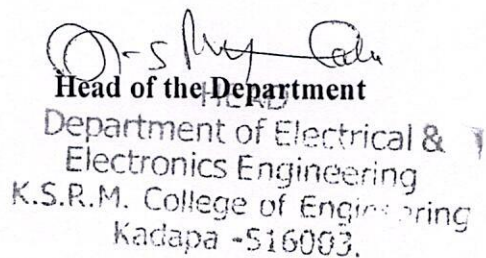 Head of the Department
HEAD
Department of Electrical &
Electronics Engineering
K.S.R.M. College of Engineering
Kadapa -516003.